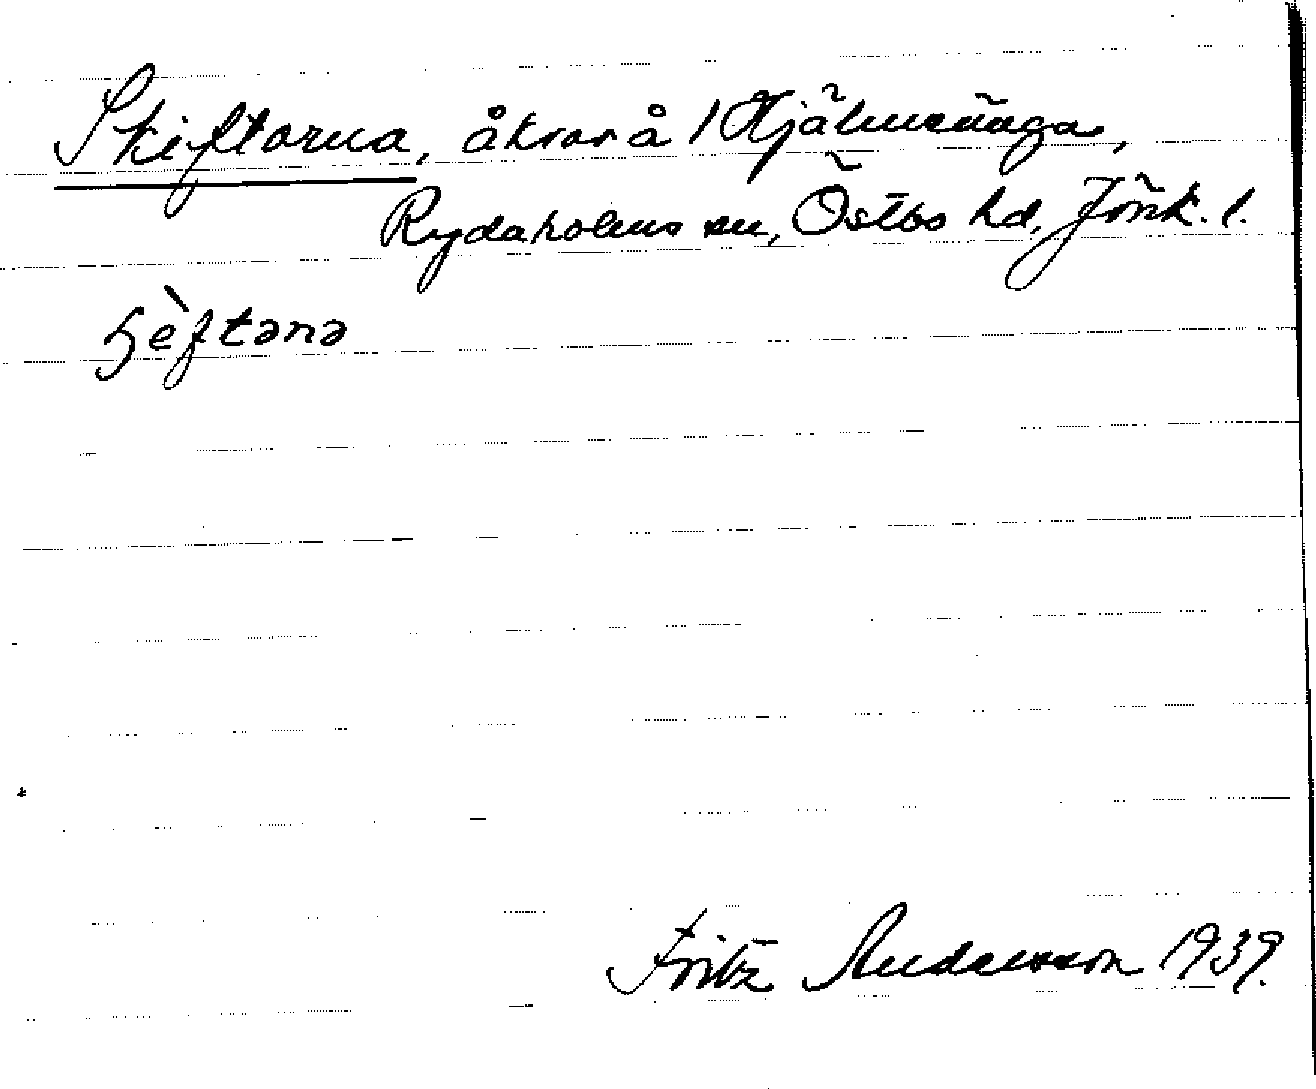 Skiftorna, åkrar å 1 Hjälmsänga,
Rydaholms sn, Östbo hd, Jönk. l.
ʂèftənə
Fritz Andersson 1939.